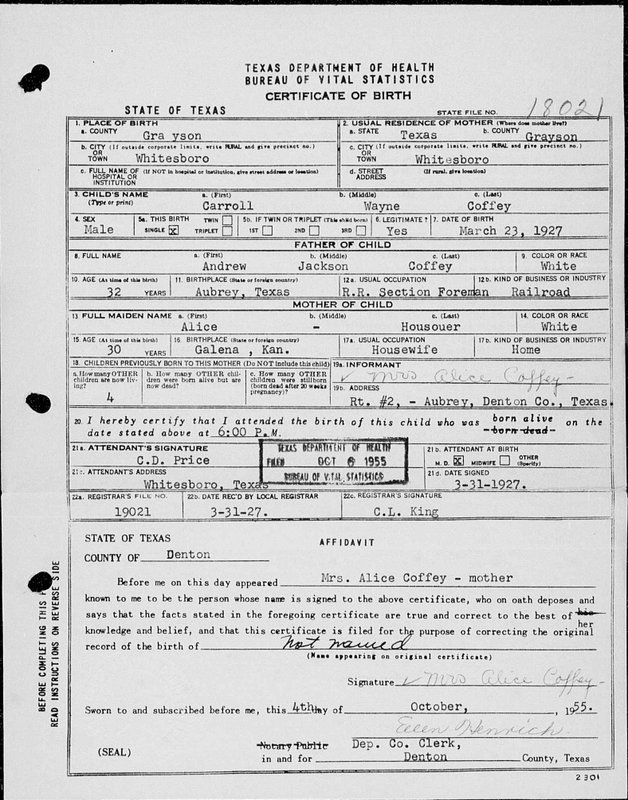 TEXAS DEPARTMENT OF HEALTH
BUREAU OF VITAL STATISTICS
CERTIFICATE OF BIRTH
STATE OF TEXAS
STATE FILE NO. 18021
1. PLACE OF BIRTH
a. COUNTY Gra yson
2. USUAL RESIDENCE OF MOTHER (Where does mother live?)
a. STATE Texas b. COUNTY Grayson
b. CITY (If outside corporate limits, write RURAL and give precinct no.)
OR
TOWN Whitesboro
c. CITY (If outside corporate limits, write RURAL and give precinct no.)
OR
TOWN Whitesboro
c. FULL NAME OF (If NOT in hospital or institution, give street address or location)
HOSPITAL OR
INSTITUTION
d. STREET (If rural, give location)
ADDRESS
3. CHILD'S NAME a. (First) b. (Middle) c. (Last)
(Type or print) Carroll Wayne Coffey
4. SEX 5a. THIS BIRTH 5b. IF TWIN OR TRIPLET (This child born) 6. LEGITIMATE? 7. DATE OF BIRTH
Male SINGLE X TWIN TRIPLET 1ST 2ND 3RD Yes March 23, 1927
FATHER OF CHILD
8. FULL NAME a. (First) b. (Middle) c. (Last) 9. COLOR OR RACE
Andrew Jackson Coffey White
10. AGE (At time of this birth) 11. BIRTHPLACE (State or foreign country) 12a. USUAL OCCUPATION 12b. KIND OF BUSINESS OR INDUSTRY
32 YEARS Aubrey, Texas R.R. Section Foreman Railroad
MOTHER OF CHILD
13 FULL MAIDEN NAME a. (First) b. (Middle) c. (Last) 14. COLOR OR RACE
Alice - Housouer White
15. AGE (At time of this birth) 16. BIRTHPLACE (State or foreign country) 17a. USUAL OCCUPATION 17b. KIND OF BUSINESS OR INDUSTRY
30 YEARS Galena , Kan. Housewife Home
18. CHILDREN PREVIOUSLY BORN TO THIS MOTHER (Do NOT include this child)
a. How many OTHER children are now living?
4
b. How many OTHER children were born alive but are now dead?
c. How many OTHER children were stillborn (born dead after 20 weeks pregnancy)?
19a. INFORMANT
Mrs Alice Coffey
19b. ADDRESS
Rt. #2, - Aubrey, Denton Co., Texas.
20. I hereby certify that I attended the birth of this child who was born alive born dead on the
date stated above at 6:00 P.M.
21a. ATTENDANT'S SIGNATURE
C.D. Price
21b. ATTENDANT AT BIRTH
M. D. X MIDWIFE OTHER (Specify)
21c. ATTENDANT'S ADDRESS
Whitesboro, Texas
TEXAS DEPARTMENT OF HEALTH
FILED OCT 6 1955
BUREAU OF VITAL STATISTICS
21d. DATE SIGNED
3-31-1927.
22a. REGISTRAR'S FILE NO. 22b. DATE REC'D BY LOCAL REGISTRAR 22c. REGISTRAR'S SIGNATURE
19021 3-31-27. C.L. King
STATE OF TEXAS
AFFIDAVIT
COUNTY OF Denton
Before me on this day appeared Mrs. Alice Coffey - mother
known to me to be the person whose name is signed to the above certificate, who on oath deposes and
says that the facts stated in the foregoing certificate are true and correct to the best of his her
knowledge and belief, and that this certificate is filed for the purpose of correcting the original
record of the birth of Not named
(Name appearing on original certificate)
Signature Mrs Alice Coffey
Sworn to and subscribed before me, this 4th day of October, 1955.
Ellen Henrich
(SEAL)
Notary Public Dep. Co. Clerk,
in and for Denton County, Texas
BEFORE COMPLETING THIS
READ INSTRUCTIONS ON REVERSE SIDE
2301